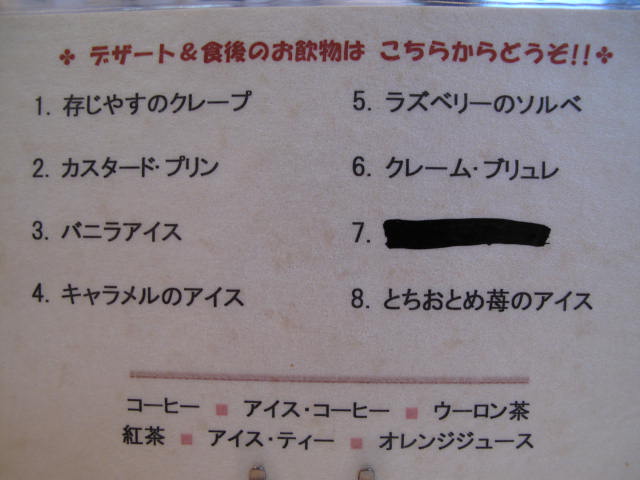 デザート&食後のお飲物は こちらからどうぞ!!
1. 存じやすのクレープ
2. カスタード・プリン
3. バニラアイス
4. キャラメルのアイス
5. ラズベリーのソルベ
6. クレーム・ブリュレ
7.
8. とちおとめ苺のアイス
コーヒー ■ アイス・コーヒー ■ ウーロン茶
紅茶 ■ アイス・ティー ■ オレンジジュース